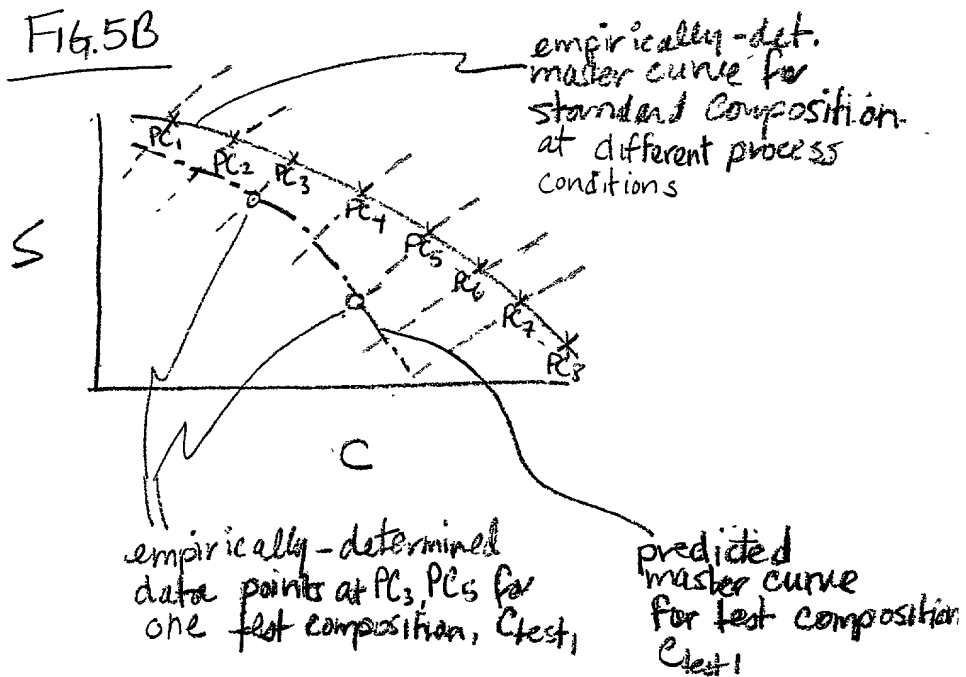 FIG.5B
empirically-det.
master curve for
standard composition
at different process
conditions
S
PC1
PC2
PC3
PC4
PC5
PC6
PC7
PC8
C
empirically-determined
data points at PC3, PC5 for
one test composition, Ctest1
predicted
master curve
for test composition
Ctest1